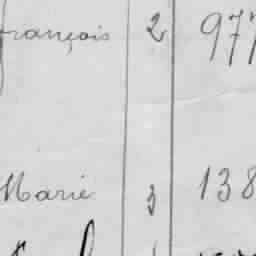 françois 2 977
Marie 3 138